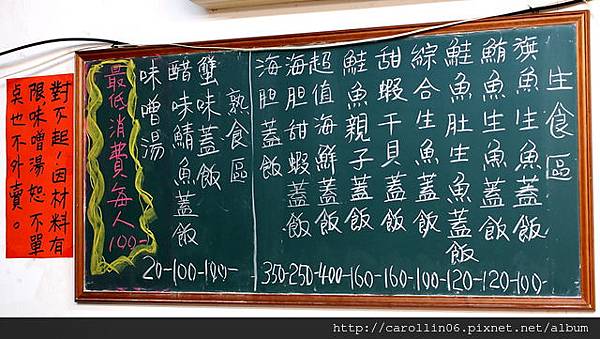 生食區
旗魚生魚蓋飯 100-
鮪魚生魚蓋飯 120-
鮭魚肚生魚蓋飯 120-
綜合生魚蓋飯 100-
甜蝦干貝蓋飯 160-
鮭魚親子蓋飯 160-
超值海鮮蓋飯 400-
海胆甜蝦蓋飯 250-
海胆蓋飯 350-
熟食區
蟹味蓋飯 100-
醋味鯖魚蓋飯 100-
味噌湯 20-
最低消費每人100-
對不起!因材料有
限,味噌湯恕不單
奌也不外賣。
http://carollin06.pixnet.net/album